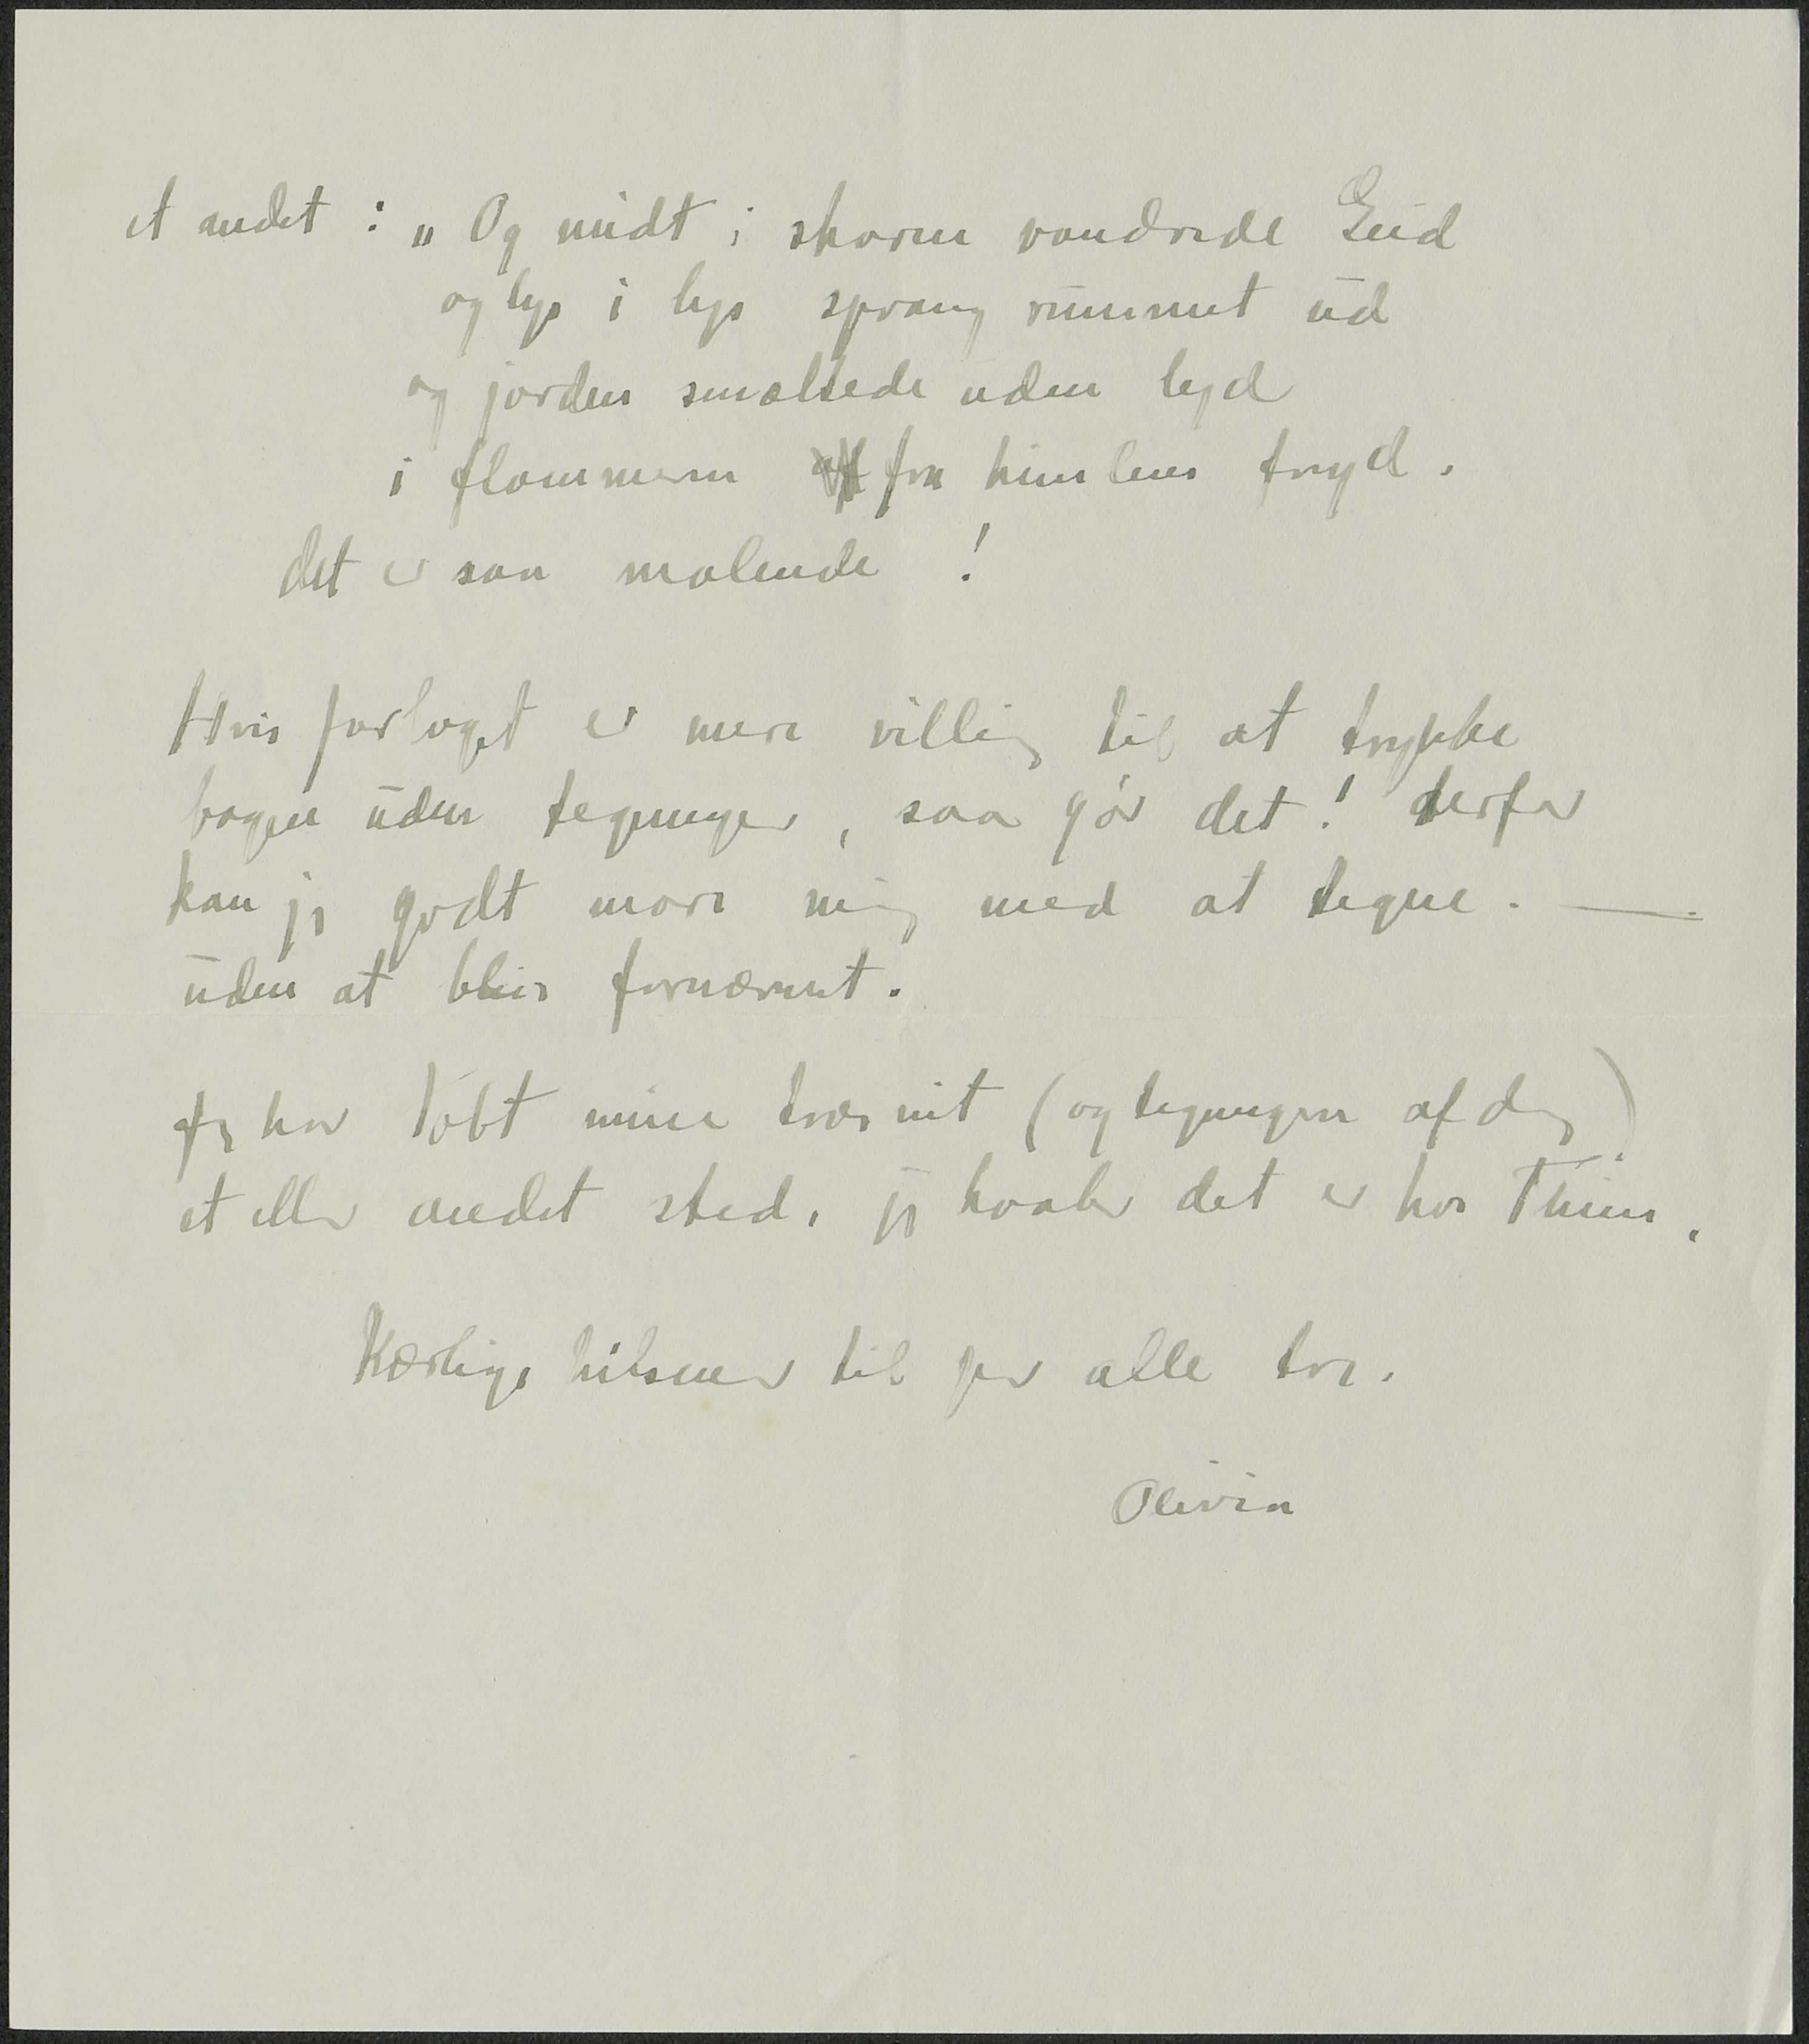 et andet : „ Og midt i skaren vandrede Gud
og lys i lys sprang rummet ud
og jorden smeltede uden lyd
i flammerne fra himlens fryd.
det er saa malende !
Hvis forlaget er mere villig til at trykke
bogen uden tegninger, saa gør det! derfor
kan jeg godt more mig med at tegne. —
uden at blive fornærmet.
Jeg har tabt mine træsnit (og tegningen af dig)
et eller andet sted, jeg haaber det er hos Thiim.
Kærlige hilsner til jer alle tre.
Olivia